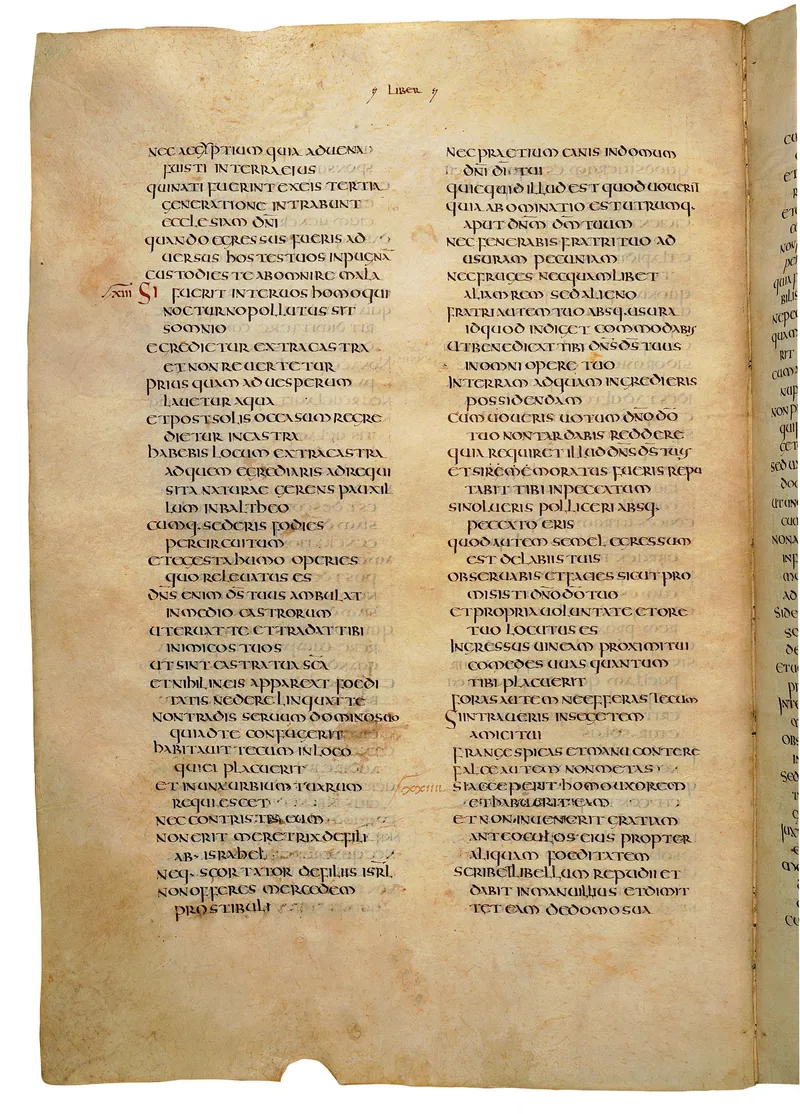 LIBER
NEC AEGYPTIUM QUIA ADUENA
FUISTI IN TERRA EIUS
QUI NATI FUERINT EX EIS TERTIA
GENERATIONE INTRABUNT
ECCLESIAM DNI
QUANDO EGRESSUS FUERIS AD
UERSUS HOSTES TUOS IN PUGNA
CUSTODIES TE AB OMNI RE MALA
SI FUERIT INTER UOS HOMO QUI
NOCTURNO POLLUTUS SIT
SOMNIO
EGREDIETUR EXTRA CASTRA
ET NON REUERTETUR
PRIUS QUAM AD UESPERUM
LAUETUR AQUA
ET POST SOLIS OCCASUM REGRE
DIETUR IN CASTRA
HABEBIS LOCUM EXTRA CASTRA
AD QUEM EGREDIARIS AD REQUI
SITA NATURAE GERENS PAUXIL
LUM IN BALTHEO
CUMQ· SEDERIS FODIES
PER CIRCUITUM
ET EGESTA HUMO OPERIES
QUO RELEUATUS ES
DNS ENIM DS TUUS AMBULAT
IN MEDIO CASTRORUM
UT ERUAT TE ET TRADAT TIBI
INIMICOS TUOS
UT SINT CASTRA TUA SCA
ET NIHIL IN EIS APPAREAT FOEDI
TATIS NE DERELINQUAT TE
NON TRADIS SERUUM DOMINO SUO
QUI AD TE CONFUGERIT
HABITAUIT TECUM IN LOCO
QUI EI PLACUERIT
ET IN UNA URBIUM TUARUM
REQUIESCET
NEC CONTRISTES EUM
NON ERIT MERETRIX DE FILI
AB· ISRAHEL
NEQ· SCORTATOR DE FILIIS ISRL
NON OFFERES MERCEDEM
PROSTIBULI
NEC PRAETIUM CANIS IN DOMUM
DNI DI TUI
QUICQUID ILLUD EST QUOD UOUERIT
QUIA ABOMINATIO EST UTRUMQ·
APUT DNM DM TUUM
NEC FENERABIS FRATRI TUO AD
USURAM PECUNIAM
NEC FRUGES NEC QUAMLIBET
ALIAM REM SED ALIENO
FRATRI AUTEM TUO ABSQ· USURA
ID QUOD INDIGET COMMODABIS
UT BENEDICAT TIBI DNS DS TUUS
IN OMNI OPERE TUO
IN TERRAM AD QUAM INGREDIERIS
POSSIDENDAM
CUM UOUERIS UOTUM DNO DO
TUO NON TARDABIS REDDERE
QUIA REQUIRET ILLUD DNS DS TUUS
ET SI REMEMORATUS FUERIS REPU
TABIT TIBI IN PECCATUM
SI NOLUERIS POLLICERI ABSQ·
PECCATO ERIS
QUOD AUTEM SEMEL EGRESSUM
EST DE LABIIS TUIS
OBSERUABIS ET FACIES SICUT PRO
MISISTI DNO DO TUO
ET PROPRIA UOLUNTATE ET ORE
TUO LOCUTUS ES
INGRESSUS UINEAM PROXIMI TUI
COMEDES UUAS QUANTUM
TIBI PLACUERIT
FORAS AUTEM NE EFFERAS TECUM
SI INTRAUERIS IN SEGETEM
AMICI TUI
FRANGES SPICAS ET MANU CONTERE
FALCE AUTEM NON METAS
SI ACCEPERIT HOMO UXOREM
ET HABUERIT EAM
ET NON INUENIERIT GRATIAM
ANTE OCULOS EIUS PROPTER
ALIQUAM FOEDITATEM
SCRIBET LIBELLUM REPUDII ET
DABIT IN MANU ILLIUS ET DIMIT
TET EAM DE DOMO SUA